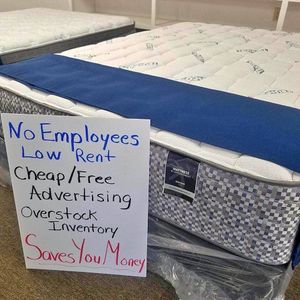 No Employees
Low Rent
Cheap/Free
Advertising
Overstock
Inventory
Saves You Money
MATTRESS